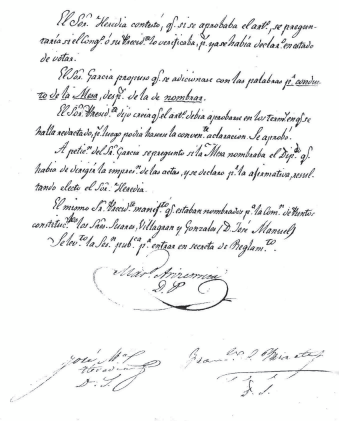 El Sór. Heredia contestó, q.e si se aprobaba el art.o, se pregun-
taria si el Cong.o ó su Presid.te lo verificaba, p.r ya se habia declar.o en estado
de votar.
El Sór. Garcia propuso q.e se adicionase con las palabras p.r conduc-
to de la Mesa, desp.s de la de nombrar.
El Sór. Presid.te dijo creia q.e el art.o debia aprobarse en los term.s en q.e se
halla redactado, p.s luego podia hacerse la conven.te aclaracion. Se aprobó.
A petic.n del Sr. Garcia se preguntó si la Mesa nombraba el Dip.do q.e
habia de dirigir la impres.n de las actas, y se declaró p.r la afirmativa, resul-
tando electo el Sór. Heredia.
El mismo Sr. Presid.te manif.tó q.e estaban nombrados p.a la Com.n de Puntos
constituc.les los Sres. Suarez, Villagran y Gonzales (D. José Manuel)
Se lev.tó la Ses.n pub.ca p.a entrar en secreta de Reglam.to
Mar.o
D. P.
José M.a
Heredia
D. S.
D. S.